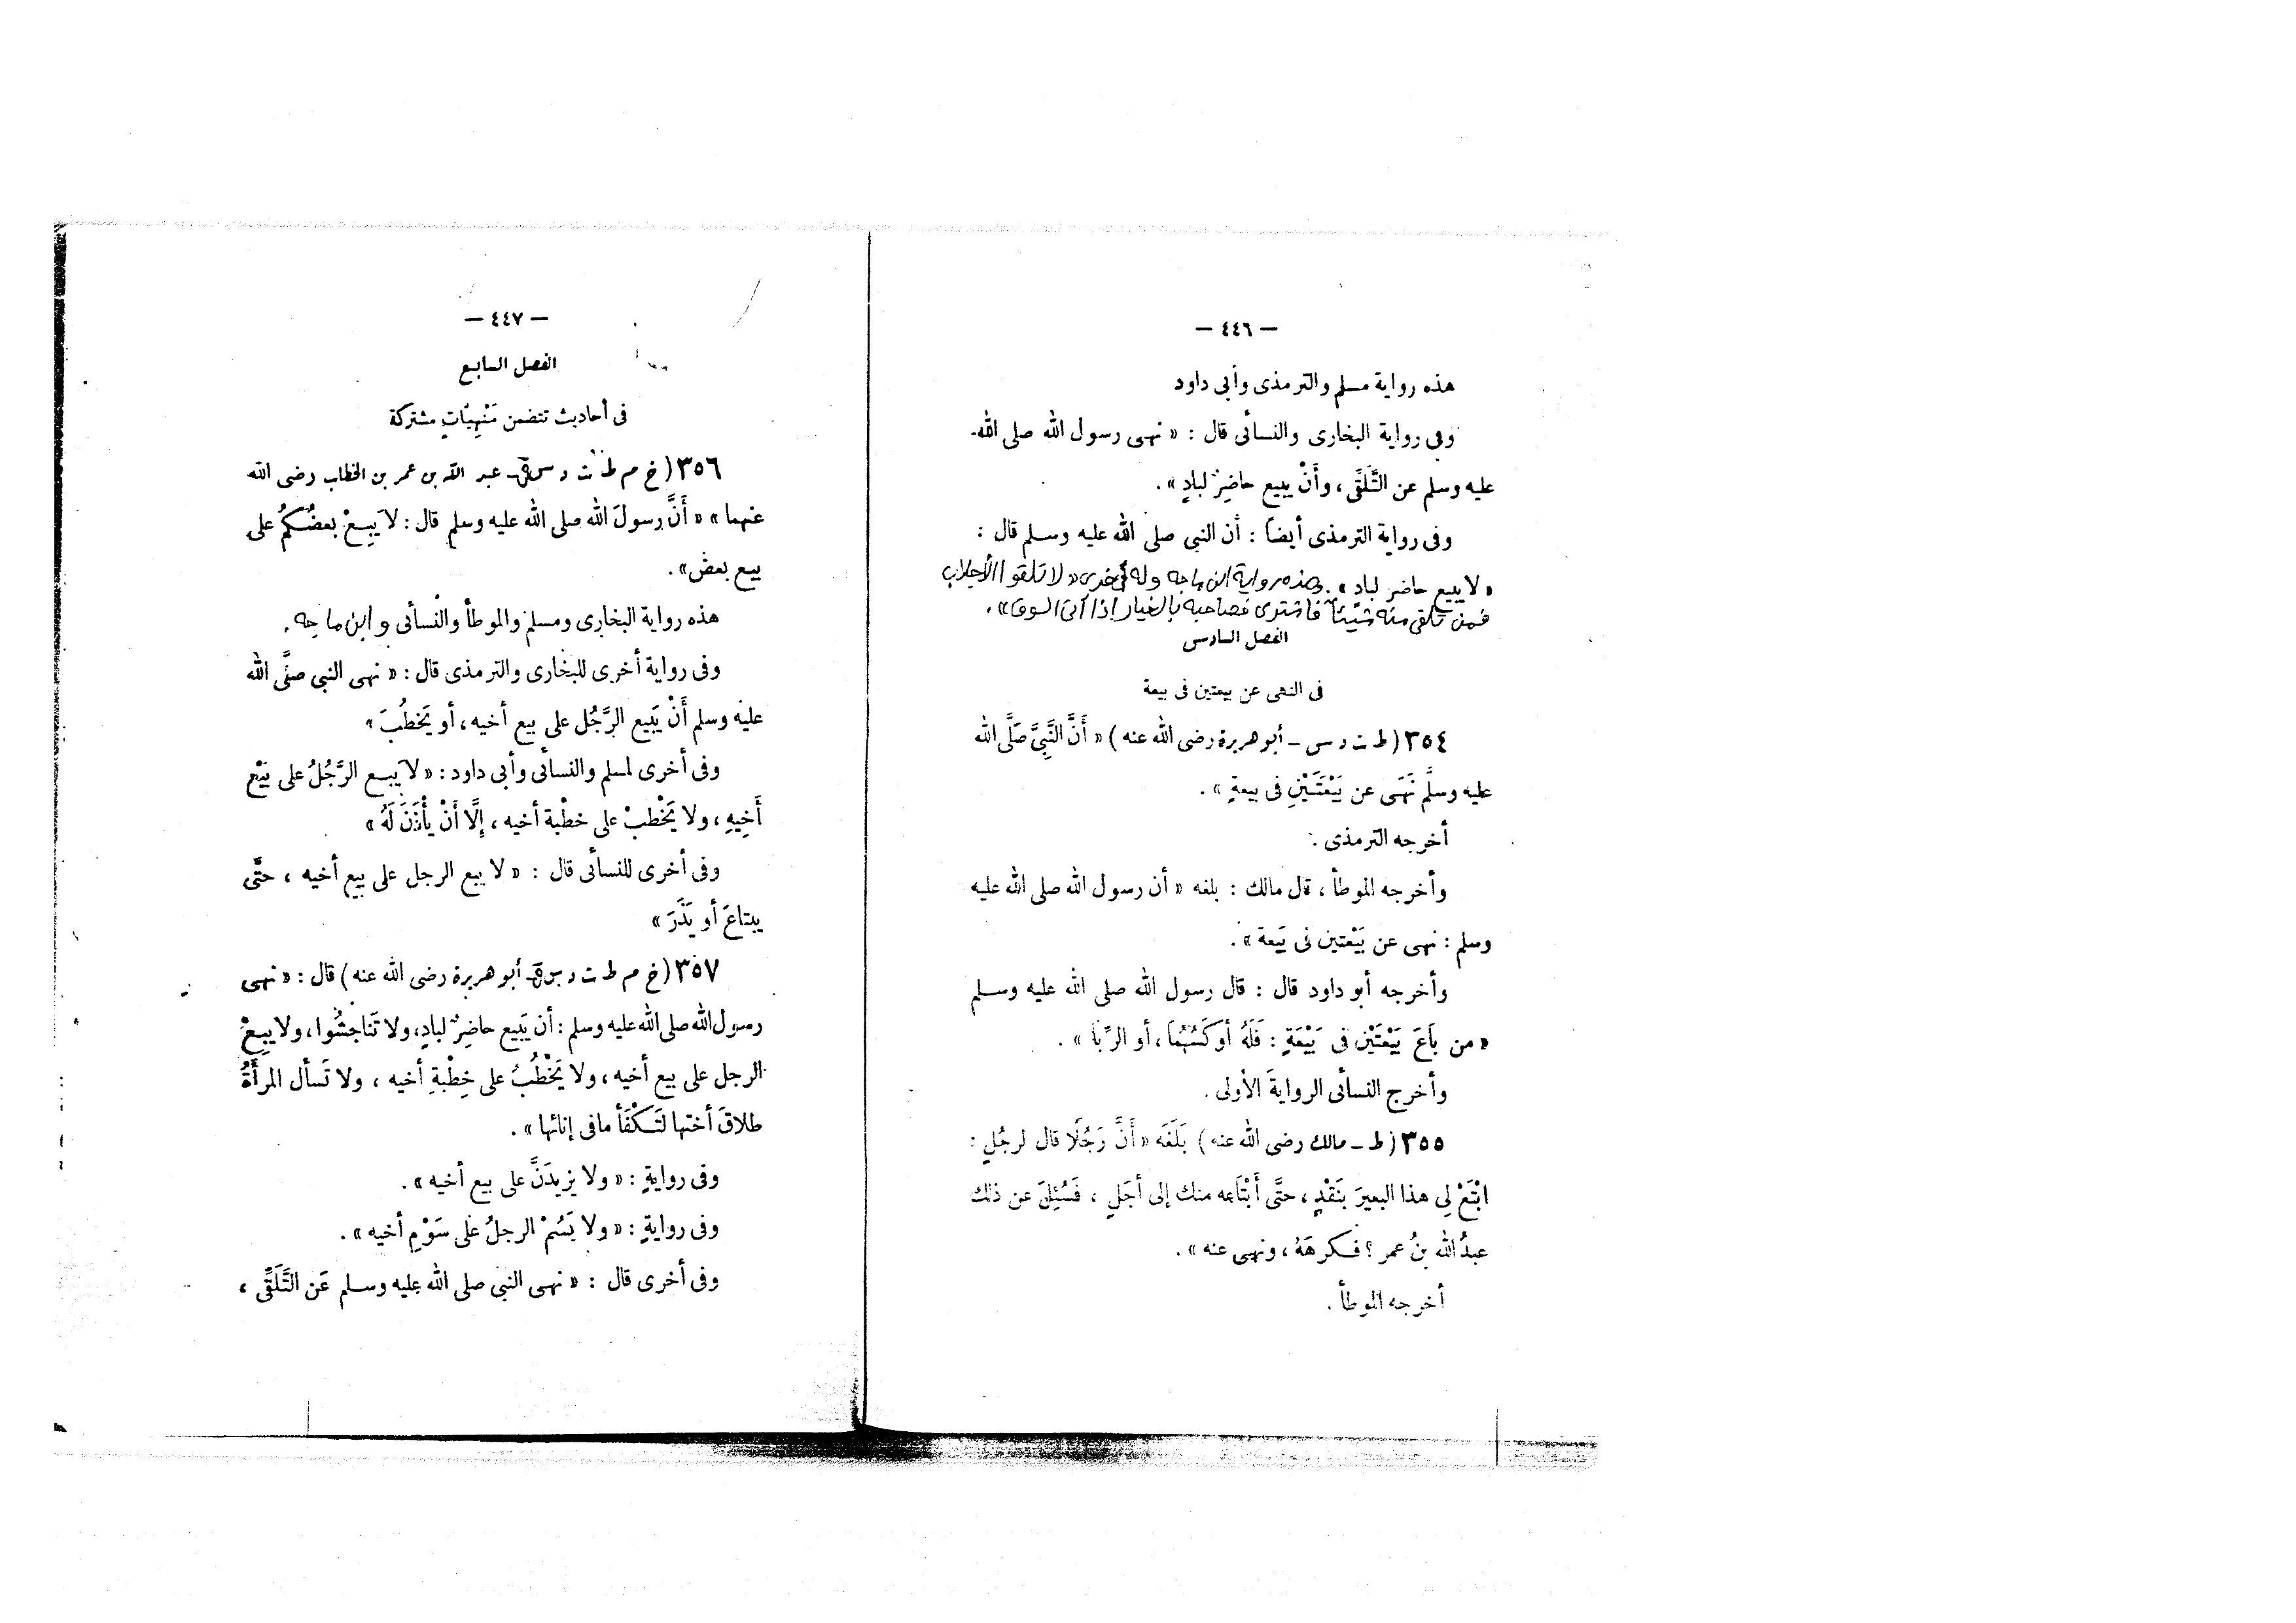 — ٤٤٦ —
هذه رواية مسلم والترمذى وأبى داود
وفى رواية البخارى والنسائى قال : « نهى رسول الله صلى الله
عليه وسلم عن التَّلَقِّى ، وأَنْ يبيع حاضِرٌ لبادٍ » .
وفى رواية الترمذى أيضاً : أن النبى صلى الله عليه وسلم قال :
« لا يبيع حاضر لباد » . وهذه رواية ابن ماجه وله أخرى « لا تلقوا الأجلاب
فمن تلقى منه شيئاً فاشترى فصاحبه بالخيار إذا أتى السوق » .
الفصل السادس
فى النهى عن بيعتين فى بيعة
٣٥٤ ( ط ت د س – أبو هريرة رضى الله عنه ) « أَنَّ النَّبِيَّ صَلَّى الله
عليه وسلَّم نَهَى عن بَيْعَتَيْنِ فى بيعةٍ » .
أخرجه الترمذى .
وأخرجه الموطأ ، قال مالك : بلغه « أن رسول الله صلى الله عليه
وسلم : نهى عن بَيْعتين فى بَيعة » .
وأخرجه أبو داود قال : قال رسول الله صلى الله عليه وسلم
« من بَاعَ بَيْعَتَيْن فى بَيْعَةٍ : فَلَهُ أوكَسُهُمَا ، أو الرِّبَا » .
وأخرج النسائى الروايةَ الأولى .
٣٥٥ ( ط – مالك رضى الله عنه ) بَلَغَه « أَنَّ رَجُلًا قال لرجُلٍ :
ابْتَعْ لِى هذا البعيرَ بنَقْدٍ ، حتَّى أَبْتَاعه منك إلى أجَلٍ ، فَسُئِلَ عن ذلك
عبدُ الله بنُ عمر ؟ فكرهَهُ ، ونهى عنه » .
أخرجه الموطأ .
— ٤٤٧ —
الفصل السابع
فى أحاديث تتضمن مَنْهِيَّاتٍ مشتركة
٣٥٦ ( خ م ط ت د س ق – عبد الله بن عمر بن الخطاب رضى الله
عنهما » « أَنَّ رسولَ الله صلى الله عليه وسلم قال : لا يَبِعْ بعضُكمُ على
بيع بعض » .
هذه رواية البخارى ومسلم والموطأ والنسائى وابن ماجه .
وفى رواية أخرى للبخارى والترمذى قال : « نهى النبى صلَّى الله
عليه وسلم أَنْ يَبيع الرَّجُل على بيع أخيه ، أو يَخطُبَ »
وفى أخرى لمسلم والنسائى وأبى داود : « لا يَبع الرَّجُلُ على بَيْع
أَخِيهِ ، ولا يَخْطبْ على خطْبة أخيه ، إِلَّا أَنْ يأْذَنَ لَهُ »
وفى أخرى للنسائى قال : « لا يبع الرجل على بيع أخيه ، حتَّى
يبتاعَ أو يَذَرَ »
٣٥٧ ( خ م ط ت د س ق – أبو هريرة رضى الله عنه ) قال : « نهى
رسول الله صلى الله عليه وسلم : أن يَبيع حاضِرٌ لبادٍ ، ولا تَناجشُوا ، ولا يبِعْ
الرجل على بيع أخيه ، ولا يَخْطُبُ على خِطْبةِ أخيه ، ولا تَسأل المرأَةُ
طلاقَ أختها لتَكْفَأ مافى إنائها » .
وفى روايةٍ : « ولا يزيدَنَّ على بيع أخيه » .
وفى روايةٍ : « ولا يَسُمْ الرجلُ على سَوْمِ أخيه » .
وفى أخرى قال : « نهى النبى صلى الله عليه وسلم عَن التَّلَقِّى ،